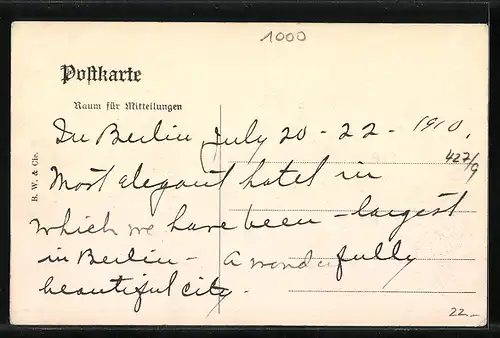 1000
Postkarte
Raum für Mitteilungen
In Berlin July 20 - 22 - 1910.
427/9
Most elegant hotel in
which we have been - largest
in Berlin - A wonderfully
beautiful city.
B. W. & Cie.
22.-